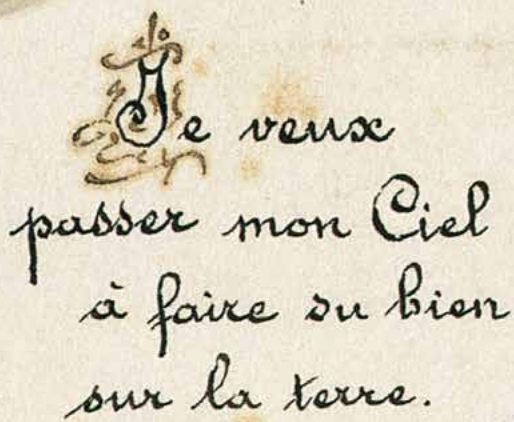 Je veux
passer mon Ciel
à faire du bien
sur la terre.